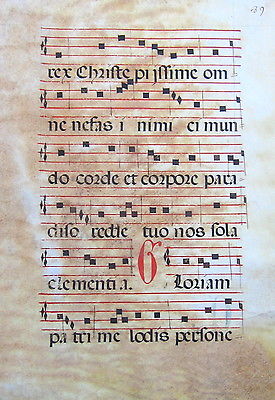 39
rex Christe pijssime om
ne nefas i nimi ci mun
do corde et corpore para
diso redde tuo nos sola
clementi a. G Loriam
pa tri me lodis persone